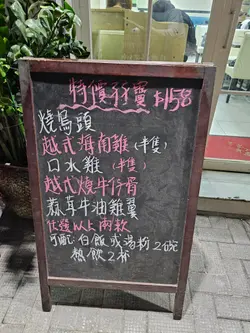 特價孖寶 $158
燒鳥頭
越式海南雞(半隻)
口水雞(半隻)
越式燒牛仔骨
蒜茸牛油雞翼
任選以上兩款
可配白飯或湯粉2碗
熱飲2杯